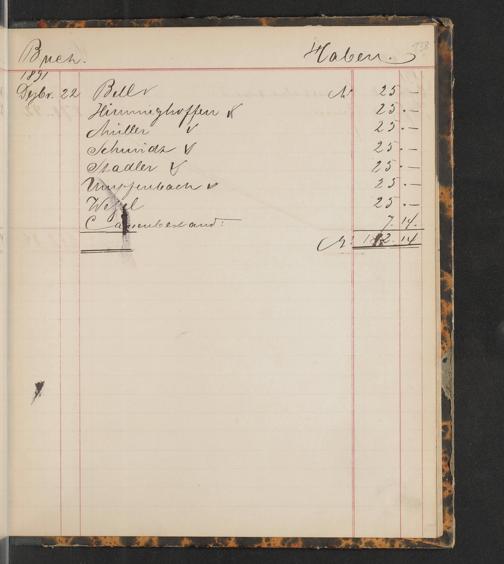 Buch. Haben. 138
1891
Dzbr. 22 Bell M 25.—
Himminghoffen 25.—
Müller 25.—
Schmidt 25.—
Stadler 25.—
Umpfenbach 25.—
Wefel 25.—
7.14.
M. 182.14